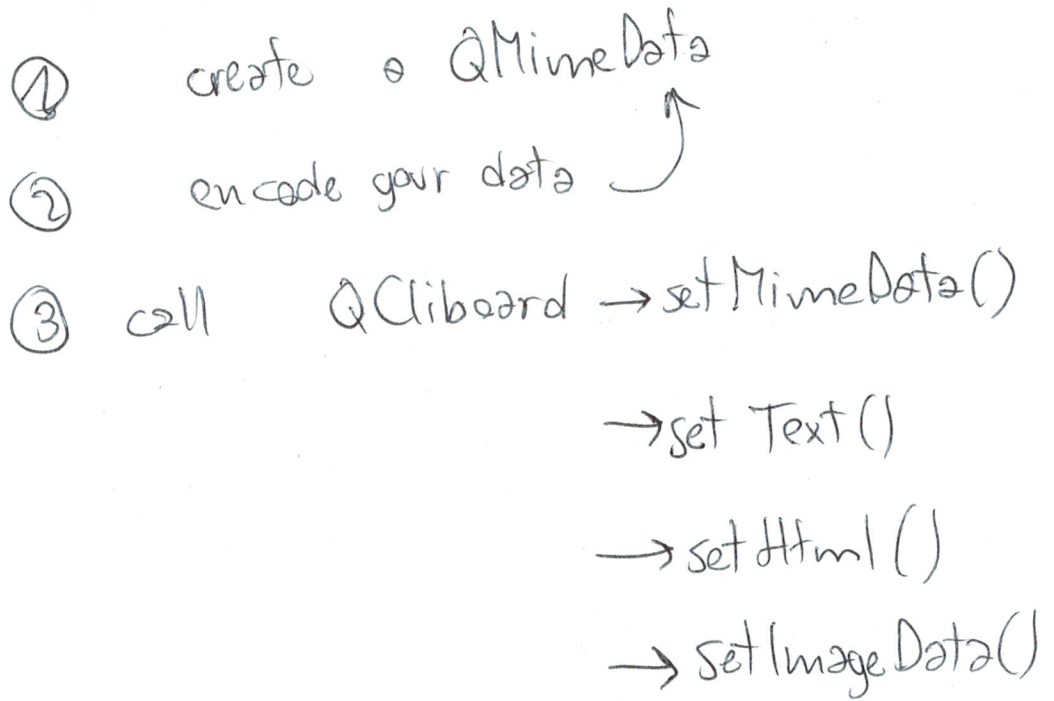 ① create a QMimeData
② encode your data
③ call QCliboard →setMimeData()
→set Text()
→setHtml()
→setImageData()